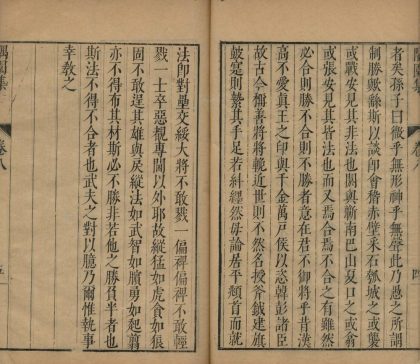 者矣孫子曰微乎無形神乎無聲此乃愚之所謂
制勝歟繇斯以談即會稽赤壁采石瓠城之或襲
或戰安見其非法也閼輿蘄南巴山夏口之或翕
或張安見其皆法也而又焉合焉不合之有雖然
必合則勝不合則不勝者意在君不御將乎昔漢
高不愛真王之印與千金萬戶侯以恣韓彭諸臣
故古今稱善將將輓近世則不然名授斧鉞建旗
鼓寔則縶其手足若糾纆然毋論居平頫首而就
法即對壘交綏大將不敢戮一偏裨偏裨不敢輕
戮一士卒惡覩專閫以外耶故縱猛如虎貪如狼
固不敢逞其雄與戾縱法如武智如臏勇如起翦
亦不得布其材斯必不勝非若他之勝負半者也
斯法不得不合者也武夫之對以臆乃爾惟執事
幸教之
隅園集
卷八
五